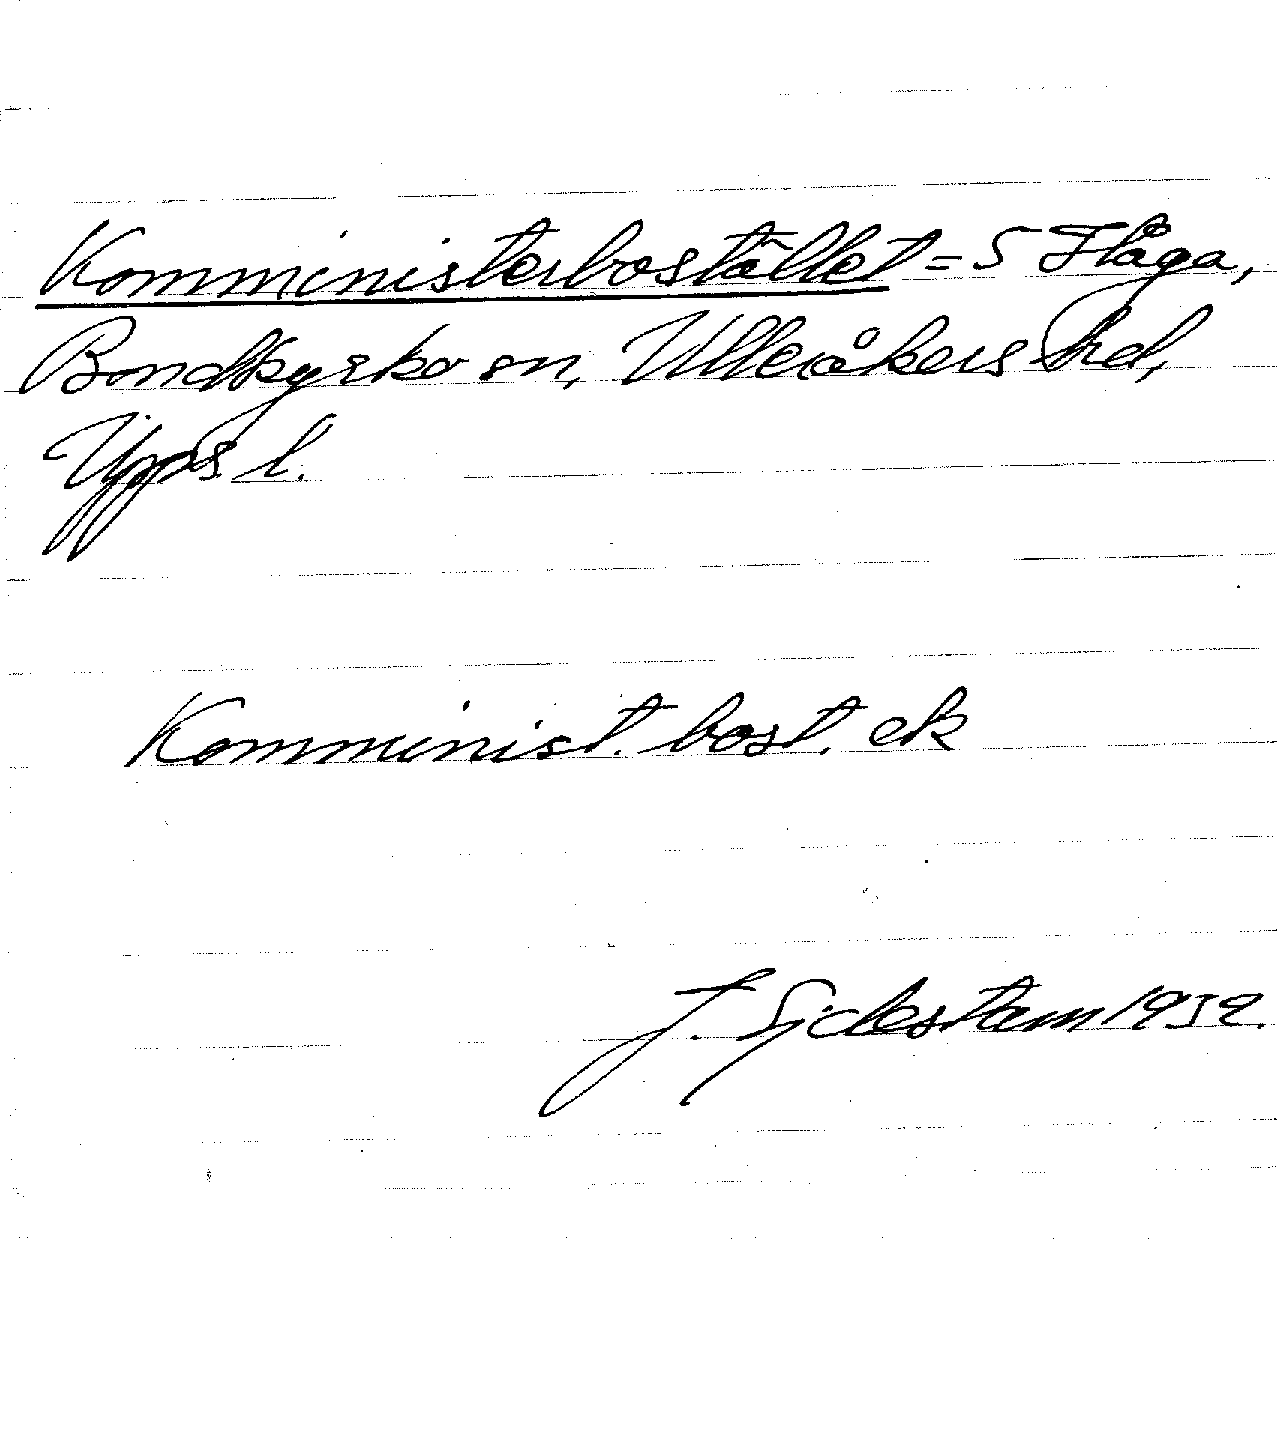 Komministerbostället = 5 Flåga,
Bondkyrko sn, Ulleråkers hd,
Upps l.
Komminist. bost. ek
J. Sjidestam 1939.